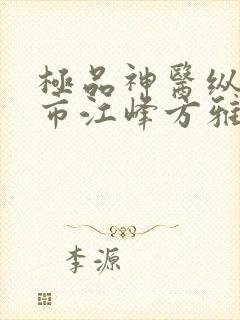 極品神醫纵
市江峰方雅
李源